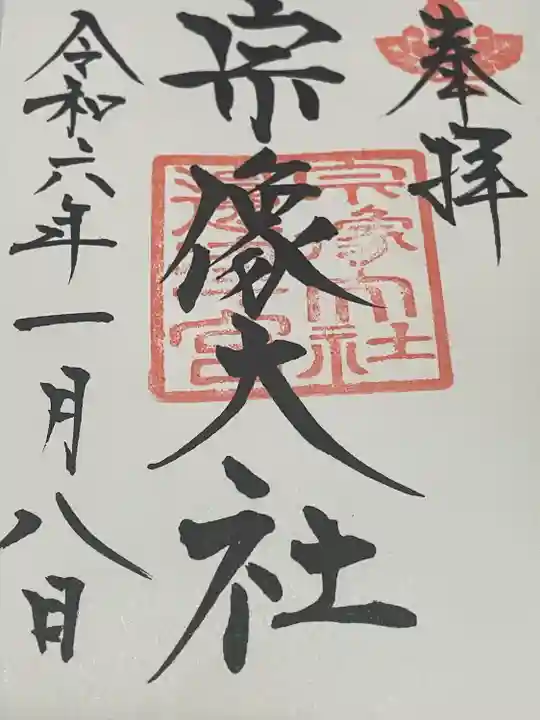 奉拝
宗像大社
宗像大社
邊津宮
令和六年一月八日